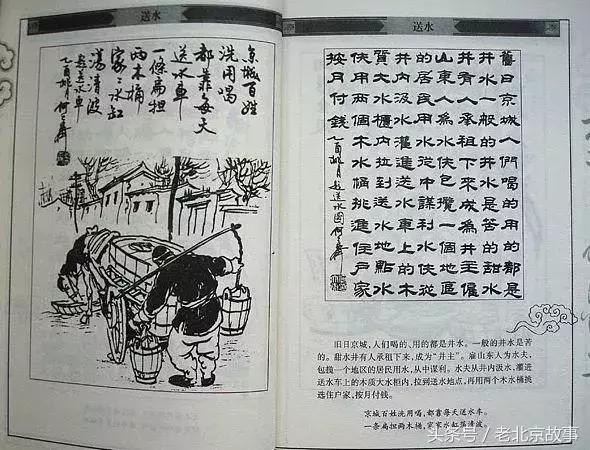 送水
京城百姓
洗用喝
都靠每天
送水車
一條扁担
两木桶
家家水缸
荡清波
乙酉桃月
送水
舊日京城人們喝的用的都是
井水一般的井水是苦的甜水
井有人承租下來成為井主雇
山東人為水伕包攬一個地區
的居民用水從中謀利水伕從
井內汲水灌進送水車上的木
質大水櫃內拉到送水地點水
伕用兩個木水桶挑進住戶家
按月付錢 乙酉桃月
旧日京城,人们喝的、用的都是井水。一般的井水是苦
的。甜水井有人承租下来,成为“井主”。雇山东人为水夫,
包揽一个地区的居民用水,从中谋利。水夫从井内汲水,灌进
送水车上的木质大水柜内,拉到送水地点,再用两个木水桶挑
选住户家,按月付钱。
京城百姓洗用喝,都靠每天送水车。
一条扁担两木桶,家家水缸荡清波。
头条号 / 老北京故事